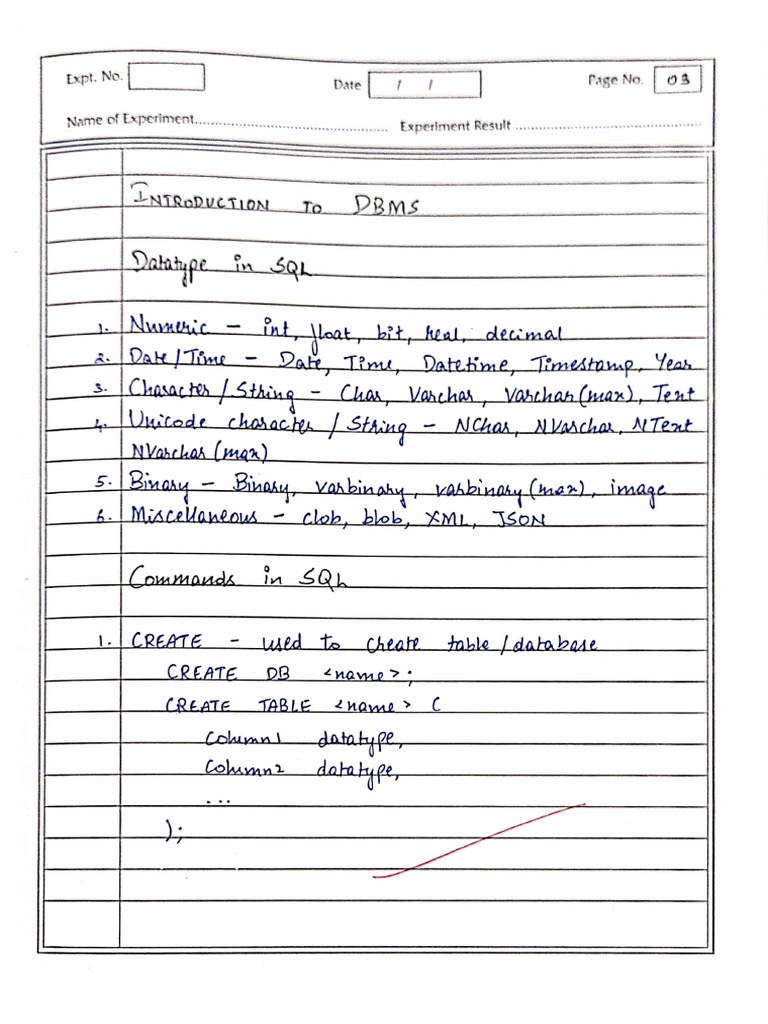 Expt. No.
Date / /
Page No. 03
Name of Experiment
Experiment Result
INTRODUCTION TO DBMS
Datatype in SQL
1. Numeric - int, float, bit, real, decimal
2. Date/Time - Date, Time, Datetime, Timestamp, Year
3. Character/String - Char, Varchar, Varchar(max), Text
4. Unicode character/String - NChar, NVarchar, NText
NVarchar(max)
5. Binary - Binary, varbinary, varbinary(max), image
6. Miscellaneous - clob, blob, XML, JSON
Commands in SQL
1. CREATE - used to create table/database
CREATE DB <name>;
CREATE TABLE <name> (
Column1 datatype,
Column2 datatype,
...
);